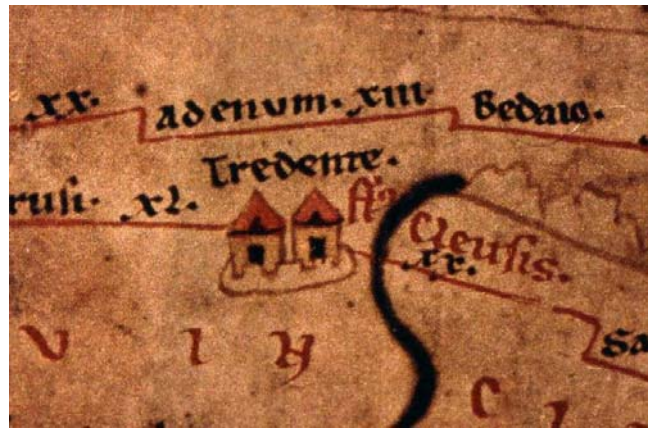 xx. adenum. xiii Bedaio.
Tredente.
rusi. xl. fl
Cleusis.
xx.
Sa
V I N
C I